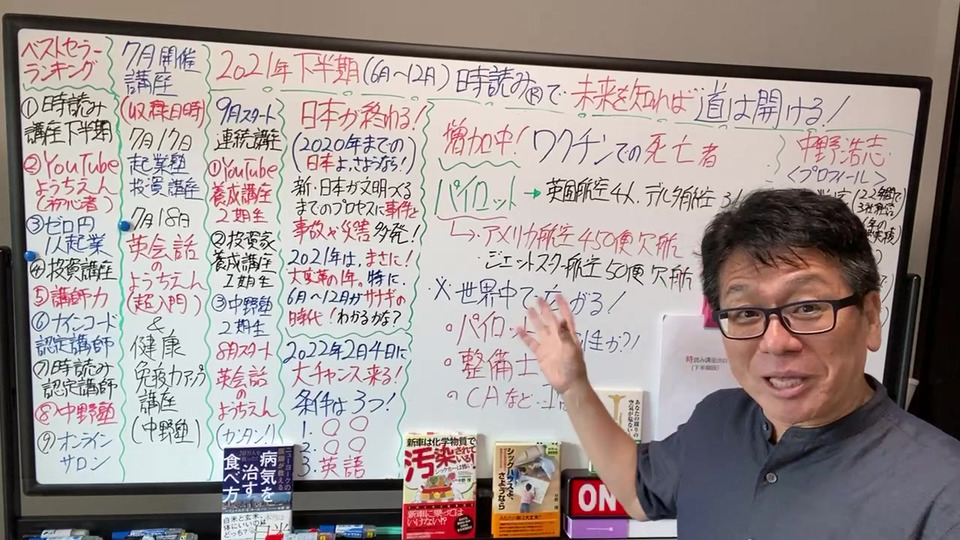 2021年下半期(6月〜12月)時読み®で未来を知れば道は開ける!
ベストセラー
ランキング
①時読み
講座下半期
②YouTube
ようちえん
(初心者)
③ゼロ円
以起業
④投資講座
⑤講師力
⑥ナインコード
認定講師
⑦時読み
認定講師
⑧中野塾
⑨オンライン
サロン
7月開催
講座
(収録日時)
7月17日
起業塾
投資講座
7月18日
英会話
の
ようちえん
(超入門)
&
健康
免疫力アップ
講座
(中野塾)
9月スタート
連続講座
①YouTube
養成講座
2期生
②投資家
養成講座
1期生
③中野塾
2期生
8月スタート
英会話
の
ようちえん
(カンタン!)
日本が終わる!
(2020年までの
日本よ、さようなら!)
新・日本が又明づくる
までのプロセスに事件と
事故や災害多発!
2021年は、まさに!
大変革の1年。特に、
6月〜12月がサナギの
時代!わかるかな?
2022年2月4日に
大チャンス来る!
条件は3つ!
1.〇〇
2.〇〇
3.英語
増加中!ワクチンでの死亡者
パイロット→英国航空4人、デルタ航空
↳・アメリカ航空450便欠航
・ジェットスター航空50便欠航
※世界中で
がる!
パイロ
整備士
CAなど
中野浩志
<プロフィール>
時読み講座
(下半期版)
ニューヨークの
医師が教える
病気を
治す
食べ方
白米と玄米、
体にいいのは
どっち?
新車は化学物質で
汚染されている!
新車に乗っては
いけない!?
シックハウスよ、
さようなら
あなたの周りの
空気が危ない
ON